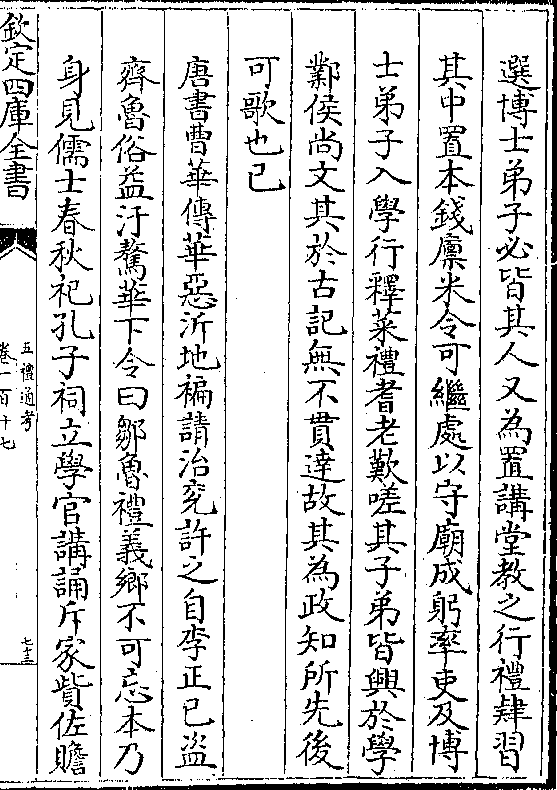 選博士弟子必皆其人又為置講堂教之行禮肄習
其中置本錢廩米令可繼處以守廟成躬率吏及博
士弟子入學行釋菜禮耆老歎嗟其子弟皆興於學
鄴侯尚文其於古記無不貫達故其為政知所先後
可歌也已
唐書曹華傳華惡沂地褊請治兖許之自李正已盜
齊魯俗益汙驁華下令曰鄒魯禮義鄉不可忘本乃
身見儒士春秋祀孔子祠立學官講誦斥家貲佐贍
欽定四庫全書
五禮通考
卷一百十七
七十三